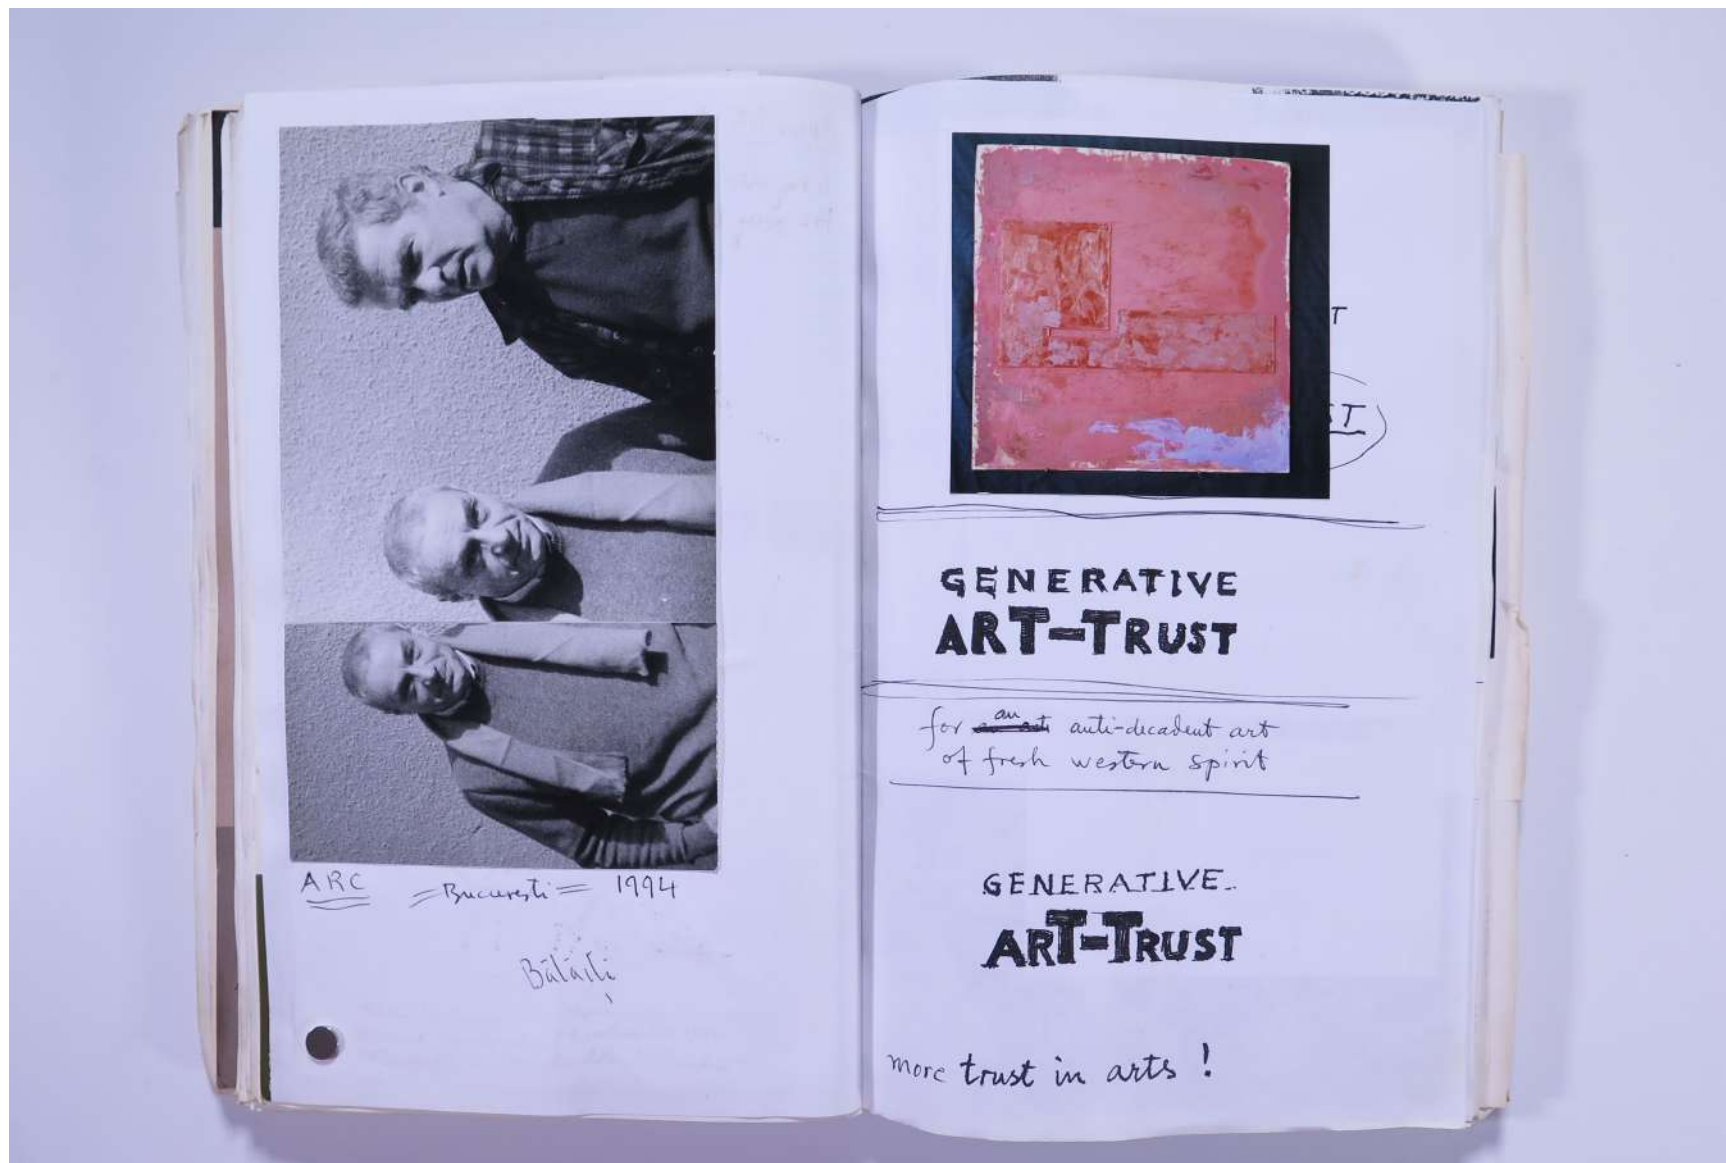 ARC =București= 1994
T
ST
GENERATIVE
ART-TRUST
for an anti-decadent art
of fresh western spirit
GENERATIVE
ART-TRUST
more trust in arts !